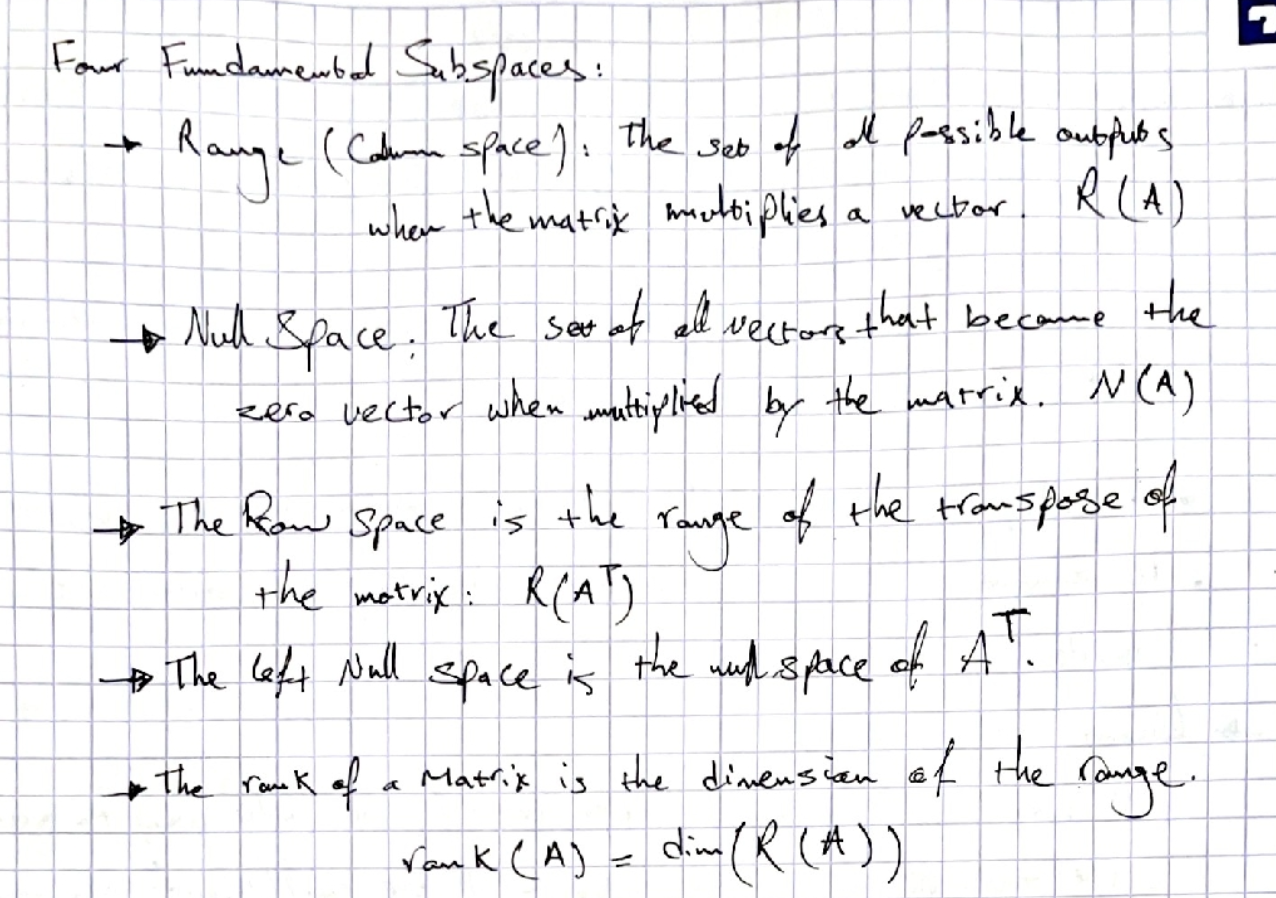 Four Fundamental Subspaces:
→ Range (Column space): The set of all possible outputs
when the matrix multiplies a vector. R(A)
→ Null Space: The set of all vectors that become the
zero vector when multiplied by the matrix. N(A)
→ The Row Space is the range of the transpose of
the matrix: R(Aᵀ)
→ The left Null space is the null space of Aᵀ.
→ The rank of a Matrix is the dimension of the range.
rank(A) = dim(R(A))